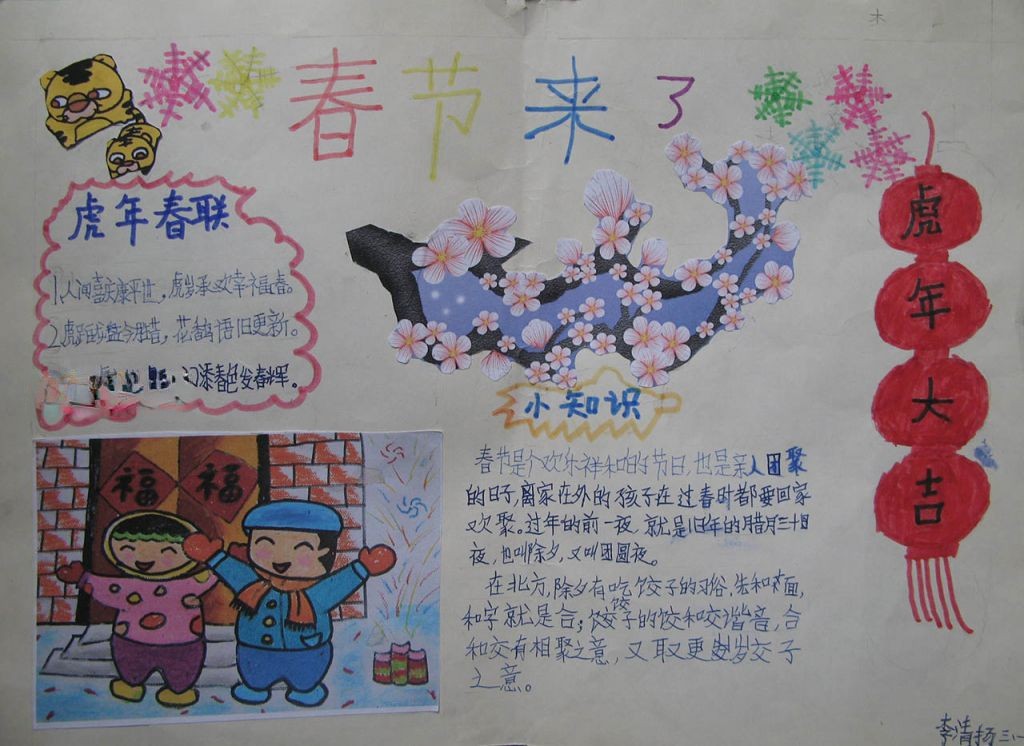 木
春节来了
虎年春联
1.人间喜庆康平世,虎岁承欢幸福春。
2.虎跃盛今胜昔,花香鸟语旧更新。
门添春色发春辉。
福 福
小知识
春节是个欢乐祥和的节日,也是亲人团聚
的日子,离家在外的孩子在过春时都要回家
欢聚。过年的前一夜,就是旧年的腊月三十
夜,也叫除夕,又叫团圆夜。
在北方,除夕有吃饺子的习俗,先和面,
和字就是合;饺子的饺和交谐音,合
和交有相聚之意,又取更岁交子
之意。
虎年大吉
李清扬 三、一